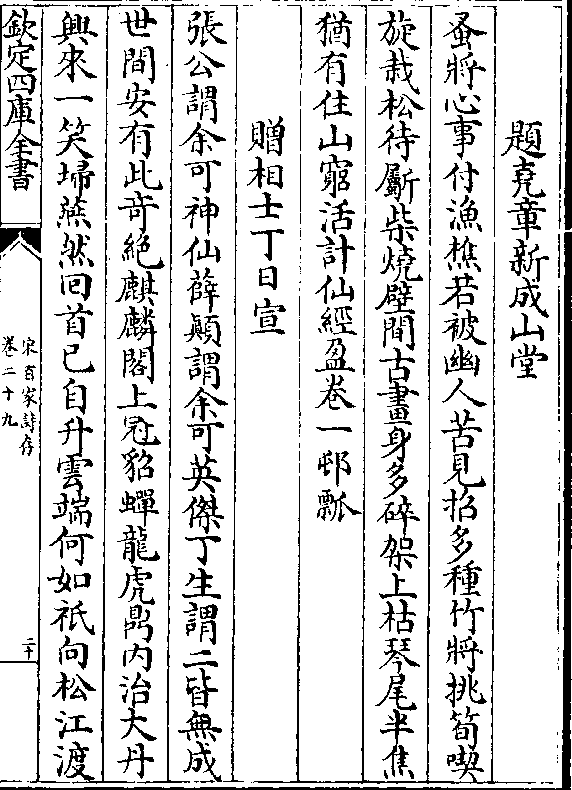 題堯章新成山堂
蚤將心事付漁樵若被幽人苦見招多種竹將挑筍喫
旋栽松待斸柴燒壁間古畫身多碎架上枯琴尾半焦
猶有住山窮活計仙經盈卷一邨瓢
贈相士丁日宣
張公謂余可神仙薛顛謂余可英傑丁生謂二皆無成
世間安有此奇絶麒麟閣上冠貂蟬龍虎鼎内治大丹
興來一笑埽燕然回首已自升雲端何如祇向松江渡
欽定四庫全書
宋百家詩存
卷二十九
二十